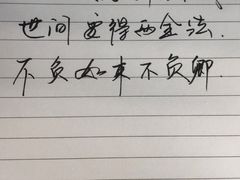 世间得两全法.
不负如来不负卿.